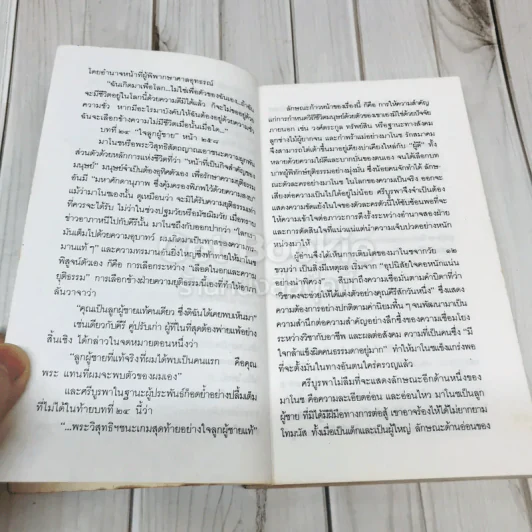 โดยอำนาจหน้าที่ผู้พิพากษาศาลอุทธรณ์
"ฉันเกิดมาเพื่อโลก...ไม่ใช่เพื่อตัวของฉันเอง...ถ้าฉัน
จะมีชีวิตอยู่ในโลกนี้ด้วยความดีมิได้แล้ว ก็จะไม่ขออยู่ด้วย
ความชั่ว หากมีอะไรมาบังคับให้ฉันต้องอยู่ด้วยความชั่ว
ฉันจะเลือกข้างความไม่มีชีวิตนั้นเมื่อใด..."
บทที่ ๒๔ "ใจลูกผู้ชาย" หน้า ๒๔๘
มาโนชหรือพระวิสุทธิสัตย
ส่วนตัวด้วยหลักการแห่งชีวิตที่ว่า "หน้าที่เป็นกิจสำคัญของ
มนุษย์" มนุษย์จำเป็นต้องอุทิศตัวเอง เพื่อรักษาความยุติธรรม
อันมี "มหาศักดานุภาพ ซึ่งคุ้มครองพิภพไว้ด้วยความสงบ"
แม้ว่ามาโนชนั้น ดูเหมือนว่าจะมิได้รับความยุติธรรมเท่า
ที่ควรจะได้รับ ไม่ว่าในช่วงปฐมวัยหรือมัชฌิมวัย
ข่าวอาภาหนีไปกับคีรีนั้น มาโนชถึงกับออกปากว่า "โลกมา
มันเต็มไปด้วยความอุบาทว์ ผมเกิดมาเป็นทาสของความ
มานแท้ๆ" และความทรมานอันยิ่งใหญ่ซึ่งท้าทายให้มาโนช
พิสูจน์ตัวเอง ก็คือ การเลือกระหว่าง "เลือดในอกและความ
ยุติธรรม" การเลือกข้างฝ่ายความยุติธรรมนี้เองที่ทำให้อาภา
ลั่นวาจาว่า
"คุณเป็นลูกผู้ชายแท้คนเดียว ซึ่งดิฉันได้เคยพบเห็นมา"
เช่นเดียวกับคีรี คู่ปรับเก่า ผู้ที่ในที่สุดต้องพ่ายแพ้อย่าง
สิ้นเชิง ได้กล่าวในจดหมายตอนหนึ่งว่า
"ลูกผู้ชายที่แท้จริงที่ผมได้พบเป็นคนแรก คือคุณ
พระ แทนที่ผมจะพบตัวของผมเอง"
และศรีบูรพาในฐานะผู้ประพันธ์ก็ตอกย้ำอย่างปลื้มเติม
ที่ไม่ได้ในท้ายบทที่ ๒๔ นี้ว่า
"...พระวิสุทธิฯชนะเกมสุดท้ายอย่างใจลูกผู้ชายแท้"
ลักษณะก้าวหน้าของเรื่องนี้ ก็คือ การให้ความสำคัญ
แก่การกำหนดวิถีชีวิตมนุษย์ด้วยตัวของเขาเองมิใช่ด้วยปัจจัย
ภายนอก เช่น วงศ์ตระกูล ทรัพย์สิน หรือฐานะทางสังคม
ลูกช่างไม้ผู้ยากจน และกำพร้าแม่อย่างมาโนช รักสมาคม
จึงสามารถไต่เต้าขึ้นมาอยู่เคียงบ่าเคียงไหล่กับ "ผู้ดี" ทั้ง
หลายด้วยความใฝ่ดีและบากบั่นของตนเอง จนได้เลือกบท
บาทผู้พิทักษ์ยุติธรรมอย่างมุ่งมั่น ซึ่งน้อยคนนักจักทำได้ ลักษ
ณะตัวละครอย่างมาโนช ในโลกของความเป็นจริง ออกจะ
เป็นจริงเป็นจังต่อไปได้อยู่ไม่น้อย ศรีบูรพาจึงจำเป็นต้อง
แสดงความขัดแย้งในใจของตัวละครตัวนี้ให้ซับซ้อนพอที่จะ
ให้ความเข้าใจต่อภาวะการดึงรั้งระหว่างอำนาจสองฝ่าย
และการตัดสินใจที่แน่แน่วเด็ดขาดแต่แฝงไปด้วยความอ่อน
หน่วงมาให้
ผู้อ่านจึงได้เห็นการเติบโตของมาโนชจากวัย ๑๒
ขวบว่า เป็นสิ่งมีเหตุผล เริ่มจาก "อุปนิสัยใจคอหนักแน่น
อย่างน่าพิศวง" สืบมาถึงความเชื่อมั่นตามคำบิดาที่ว่า
"วิชาคงจะช่วยให้ได้แต่งตัวอย่างคุณคีรีสักวันหนึ่ง" ซึ่งแสดง
ความต้องการอย่างปกติตามค่านิยมพื้นๆ จนพัฒนามาเป็น
ความสำนึกต่อความสำคัญอย่างลึกซึ้งของความเชื่อมโยง
ระหว่างวิชากับอาชีพ และผลต่อสังคม ความที่เป็นคนซึ่ง "มี
ใจกล้าแข็งผิดคนธรรมดาอยู่มาก" ทำให้มาโนชแข็งแกร่งพอ
ที่จะตั้งมั่นในทางอันตนใคร่ครวญแล้ว
ศรีบูรพาไม่ลืมที่จะแสดงลักษณะอีกด้านหนึ่งของ
มาโนช คือความละเอียดอ่อน และอ่อนไหว มาโนชเป็นลูก
ผู้ชาย ที่มิได้มีฝีมือทางการต่อสู้ เขาอาจร้องไห้ได้ไม่ยากยาม
โทมนัส ทั้งเมื่อเป็นเด็กและเป็นผู้ใหญ่ ลักษณะด้านอ่อนของ